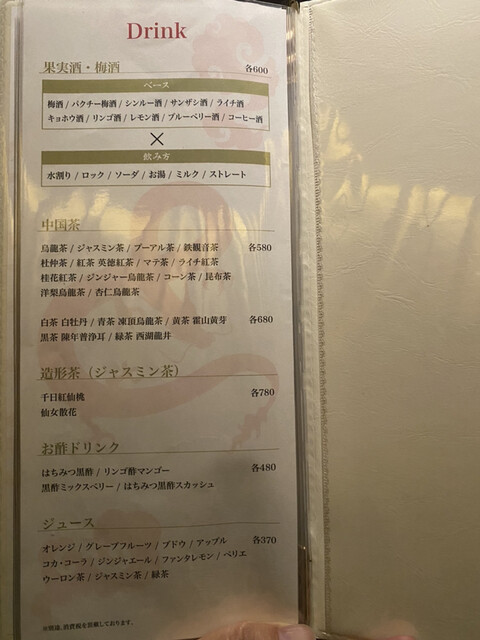 Drink
果実酒・梅酒 各600
ベース
梅酒 / パクチー梅酒 / シンルー酒 / サンザシ酒 / ライチ酒
キョホウ酒 / リンゴ酒 / レモン酒 / ブルーベリー酒 / コーヒー酒
×
飲み方
水割り / ロック / ソーダ / お湯 / ミルク / ストレート
中国茶
烏龍茶 / ジャスミン茶 / プーアル茶 / 鉄観音茶 各580
杜仲茶 / 紅茶 英徳紅茶 / マテ茶 / ライチ紅茶
桂花紅茶 / ジンジャー烏龍茶 / コーン茶 / 昆布茶
洋梨烏龍茶 / 杏仁烏龍茶
白茶 白牡丹 / 青茶 凍頂烏龍茶 / 黄茶 霍山黄芽 各680
黒茶 陳年普洱茶 / 緑茶 西湖龍井
造形茶（ジャスミン茶） 各780
千日紅仙桃
仙女散花
お酢ドリンク
はちみつ黒酢 / リンゴ酢マンゴー 各480
黒酢ミックスベリー / はちみつ黒酢スカッシュ
ジュース
オレンジ / グレープフルーツ / ブドウ / アップル 各370
コカ・コーラ / ジンジャエール / ファンタレモン / ペリエ
ウーロン茶 / ジャスミン茶 / 緑茶
※別途、消費税を頂戴しております。